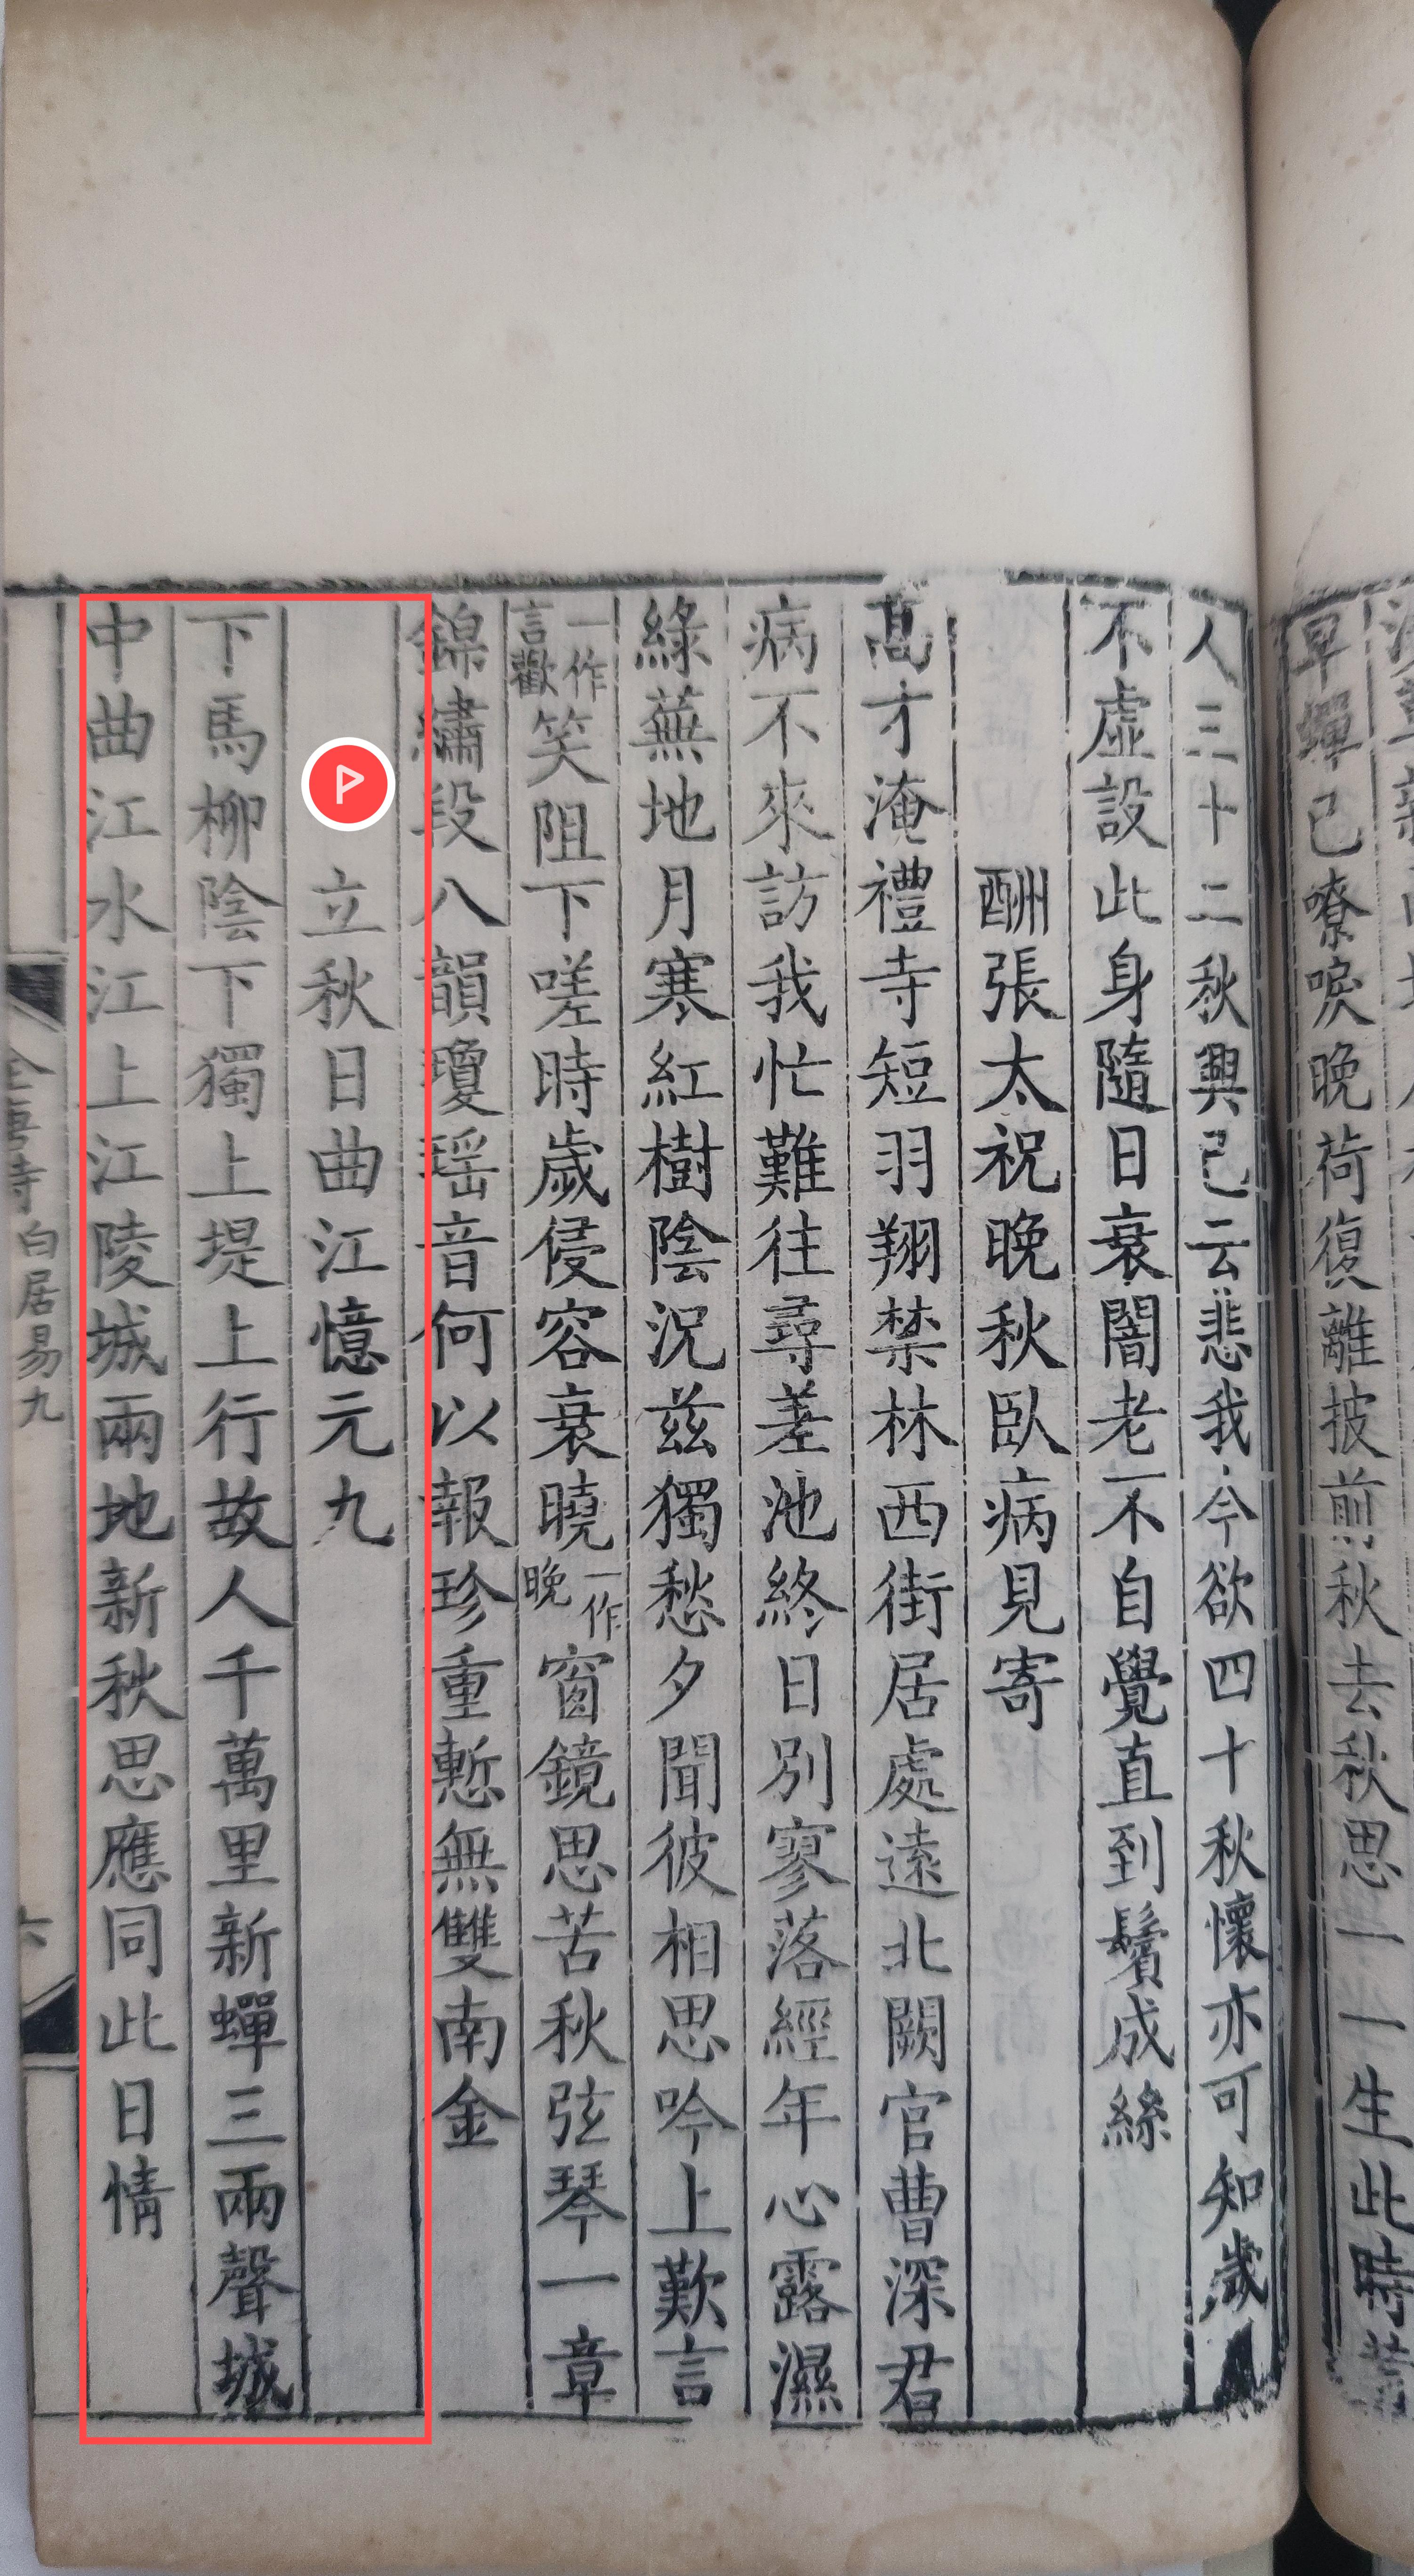 早蟬已嘹唳晚荷復離披前秋去秋思一一生此時
人三十二秋興已云悲我今欲四十秋懷亦可知歲
不虛設此身隨日衰闇老不自覺直到鬢成絲
酬張太祝晚秋臥病見寄
高才淹禮寺短羽翔禁林西街居處遠北闕官曹深君
病不來訪我忙難往尋差池終日別寥落經年心露濕
綠蕪地月寒紅樹陰況茲獨愁夕聞彼相思吟上歎言
一作言歡笑阻下嗟時歲侵容衰曉一作晚窗鏡思苦秋弦琴一章
錦繡段八韻瓊瑤音何以報珍重慙無雙南金
立秋日曲江憶元九
下馬柳陰下獨上堤上行故人千萬里新蟬三兩聲城
中曲江水江上江陵城兩地新秋思應同此日情
白居易九
六